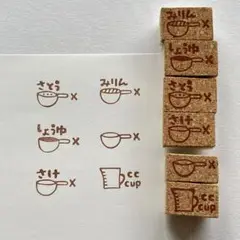 さとう
×
みりん
×
しょうゆ
×
×
さけ
×
cc
cup
みりん
×
しょうゆ
×
さとう
×
さけ
×
×
cc
cup